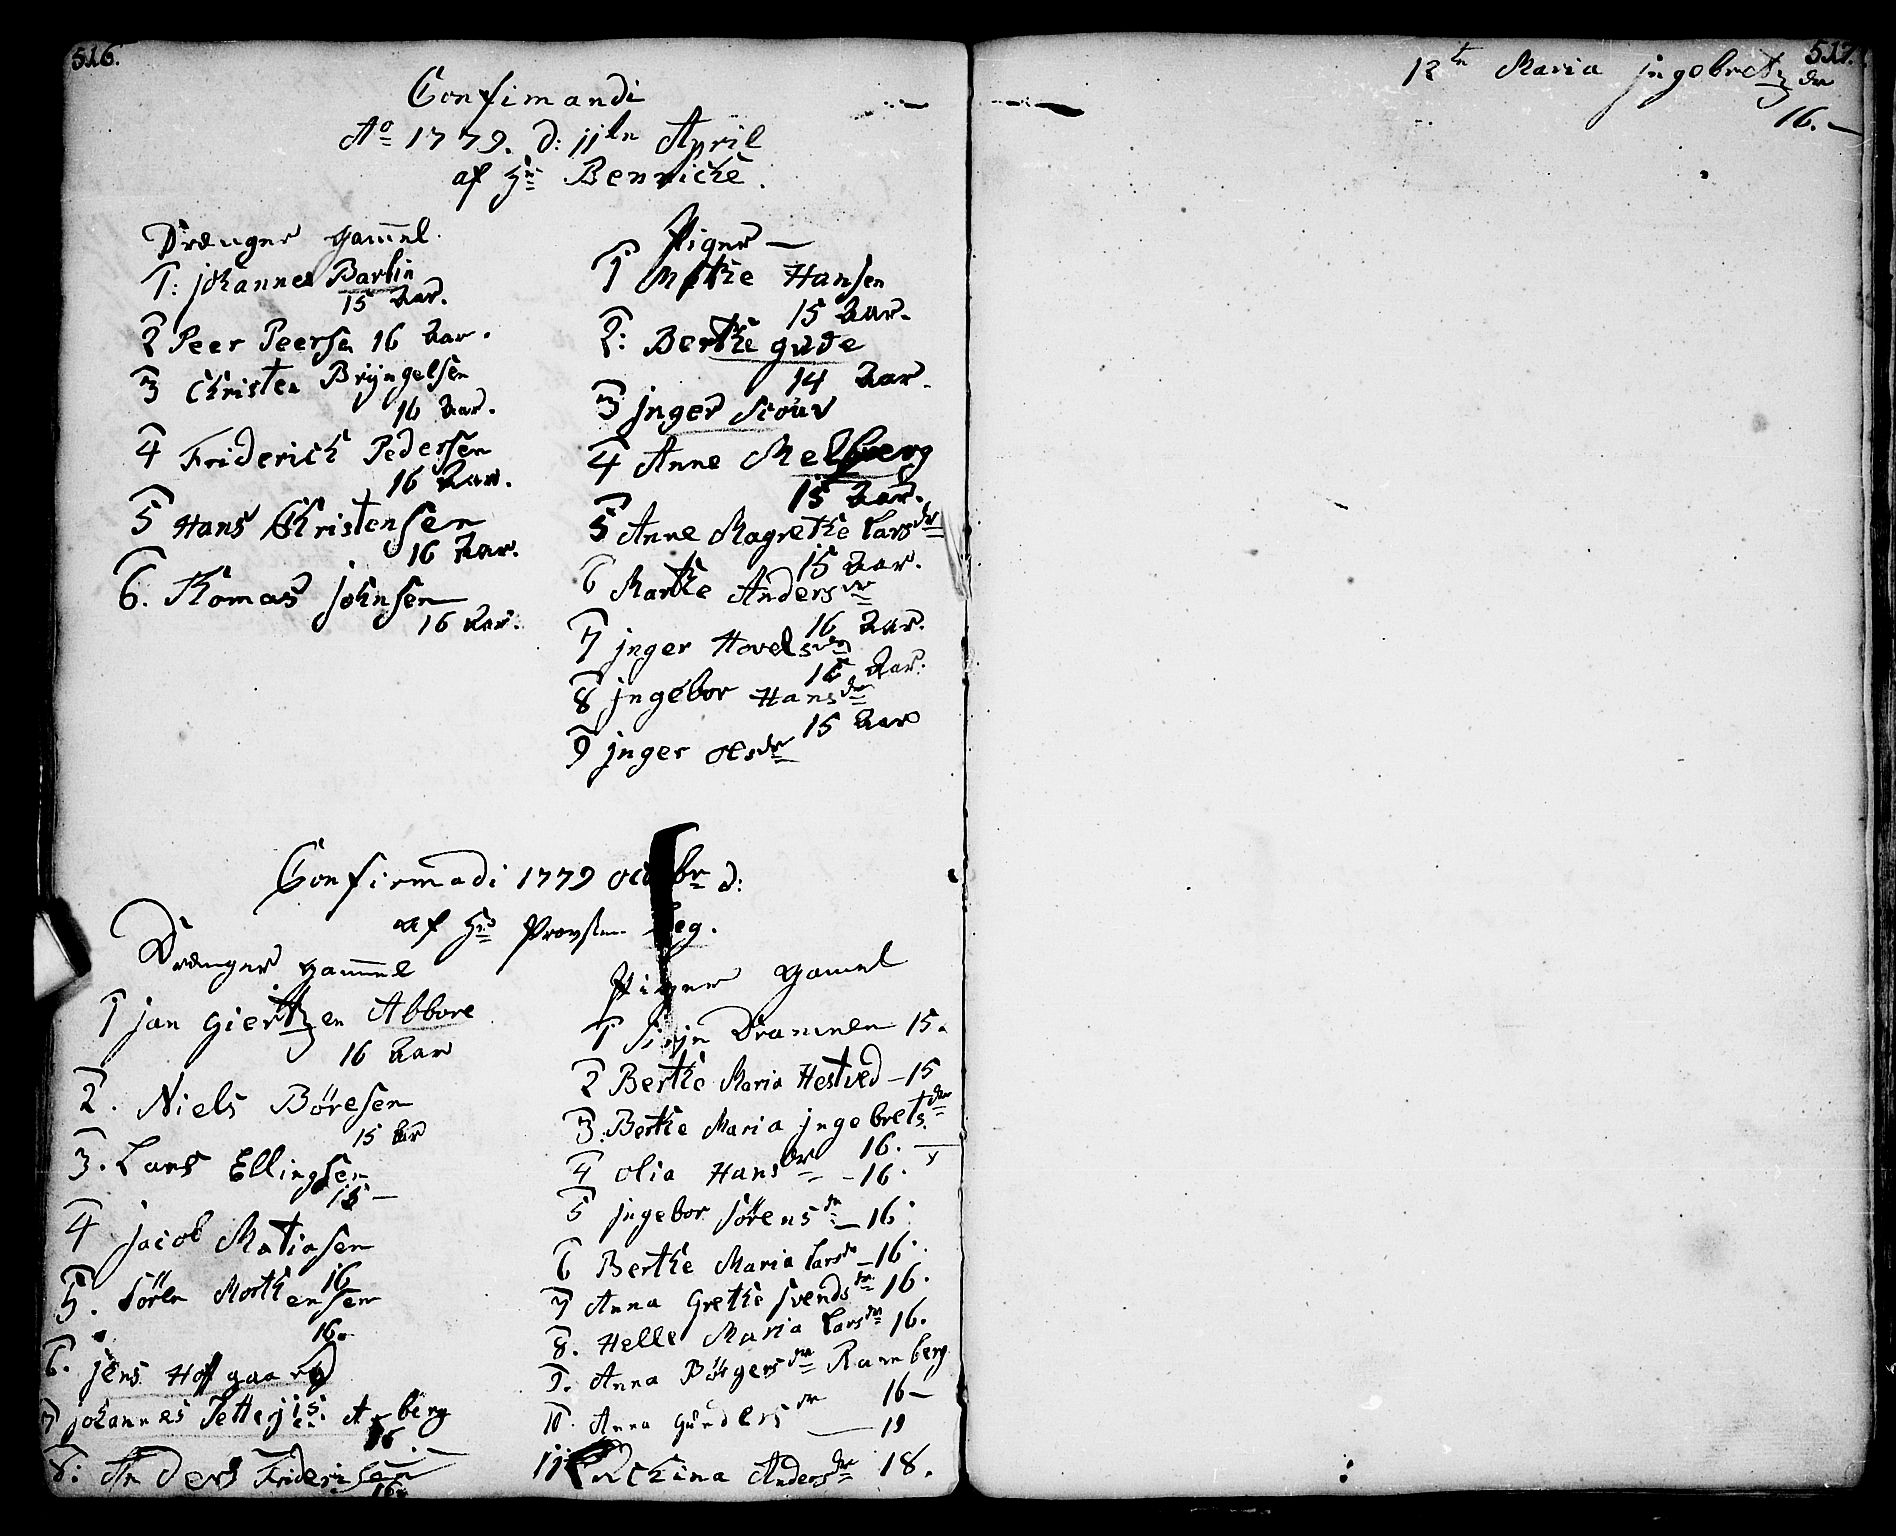 516.
Confimandi
Ao 1779. d: 11te April
af Hr Bennicke.
Drænger gamel.
1: johannes Barlin
15 Aar.
2 Peer Peersen 16 Aar.
3 Christen Bryngelsen
16 Aar.
4 Friderich Pedersen
16 Aar.
5 Hans Christensen
16 Aar.
6. Thomas johnsen
16 Aar.
Piger
1 Methe Hansen
15 Aar.
2: Berthe gude
14 Aar.
3 jnger
4 Anne Melberg
15 Aar.
5 Anne Magrethe Larsdr
15 Aar.
6 Marthe Andersdr
16 Aar.
7 jnger Hovelsdr
Aar.
8 jngebor Hansdr
15 Aar
9 jnger Olsdr
Confirmadi 1779 octobr d:
af Hr Provsten
Drænger gammel
1 jan giertzen Abbore
16 Aar
2. Niels Böresen
15 Aar
3. Lars Ellingsen
15
4 jacob Matiasen
16
5. Sören Morthensen
16.
6. jens Hofgaard
7 johannes Petterjsen
16
8: Anders Fridericsen
16
Piger gamel
1 Drammen 15.
2 Berthe Maria Hestved 15
3: Berthe Maria jngebretsdr
16.
4 Olia Hansdr 16.
5 jngebor Sörensdr 16.
6 Berthe Maria Larsdr 16.
7 Anna Grethe Svendsdr 16.
8. Helle Maria Larsdr 16.
9. Anna Börgersdr Ramberg
16
10. Anna Gundersdr 19
11 Andersdr 18.
517.
12te Maria jngebretzdr
16.